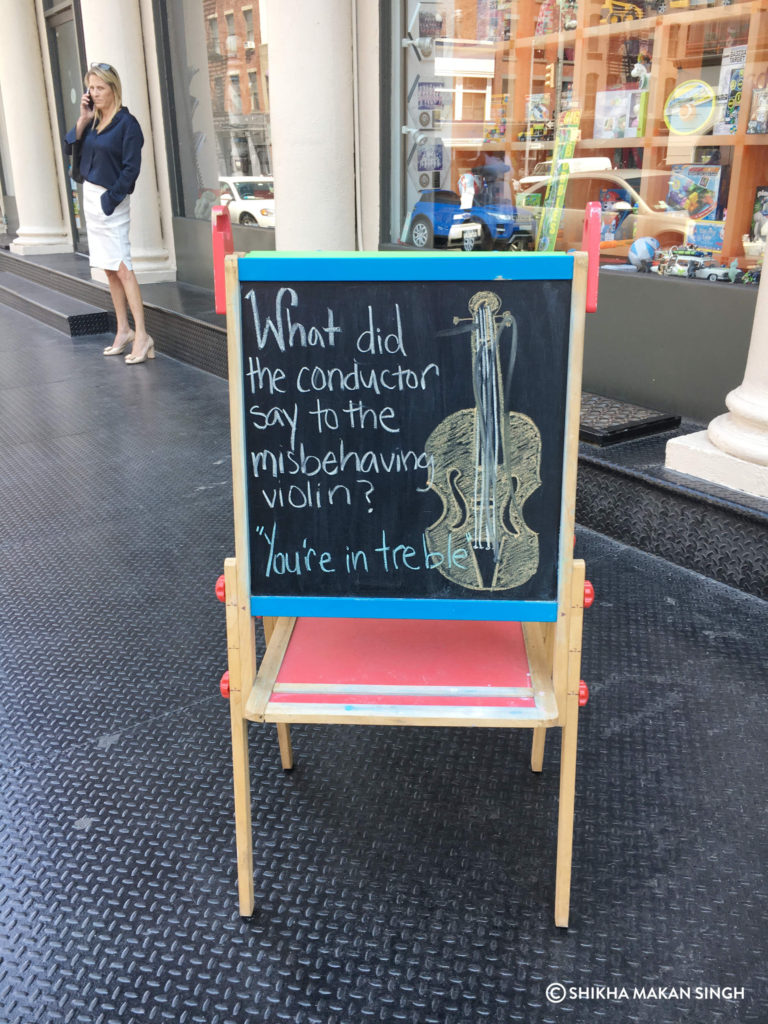 What did
the conductor
say to the
misbehaving
violin?
"You're in treble"
©SHIKHA MAKAN SINGH